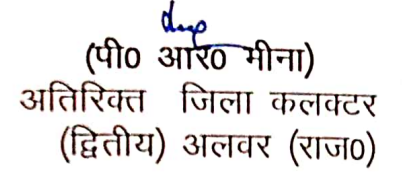 (पी० आर० मीना)
अतिरिक्त जिला कलक्टर
(द्वितीय) अलवर (राज०)